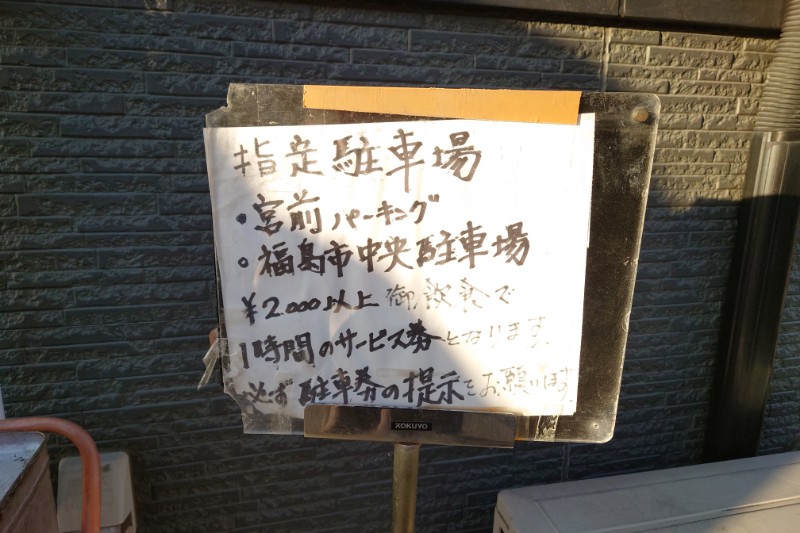 指定駐車場
・宮前パーキング
・福島市中央駐車場
¥2.000以上御飲食で
1時間のサービス券となります。
必ず駐車券の提示をお願いします
KOKUYO